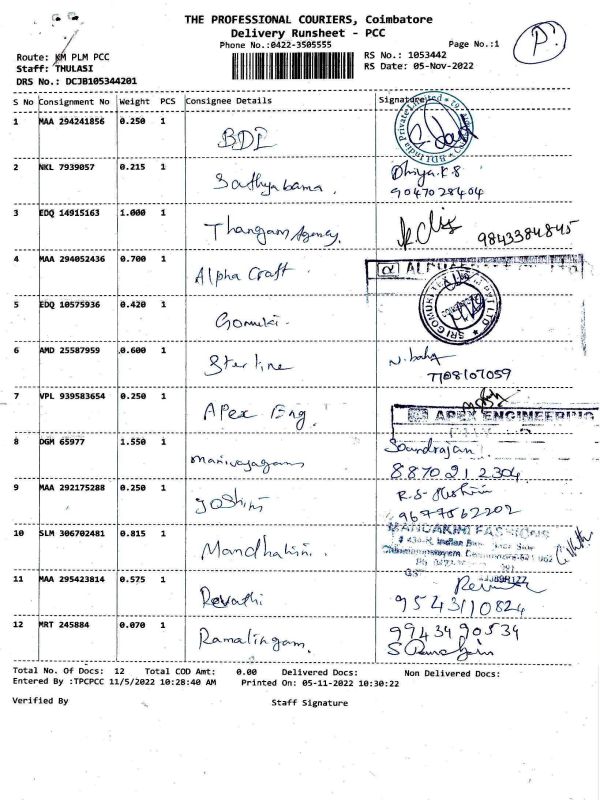 THE PROFESSIONAL COURIERS, Coimbatore
Delivery Runsheet - PCC
Phone No.:0422-3505555
Page No.:1
P.
Route: KM PLM PCC
RS No.: 1053442
Staff: THULASI
RS Date: 05-Nov-2022
DRS No.: DCJB105344201
S No Consignment No Weight PCS Consignee Details Signature
1 MAA 294241856 0.250 1 BDI
BDI India Private Limited
2 NKL 7939057 0.215 1 Sathyabama. Dhiya.K.S
9047028404
3 EDQ 14915163 1.000 1 Thangam Agency. 9843384845
4 MAA 294052436 0.700 1 Alpha Craft
5 EDQ 10575936 0.420 1 Gomuki.
SRI GOMUKI
6 AMD 25587959 0.600 1 Sterline
7108107059
7 VPL 939583654 0.250 1 Apex Eng.
APEX ENGINEERING
8 DGM 65977 1.550 1 manivasagam Soundrajan
8870212304
9 MAA 292175288 0.250 1 Joshini R.S-
9677562202
10 SLM 306702481 0.815 1 Mandhakini.
MANDAKINI FASHIONS
11 MAA 295423814 0.575 1 Revathi
9543110824
12 MRT 245884 0.070 1 Ramalingam. 9943490534
Total No. Of Docs: 12 Total COD Amt: 0.00 Delivered Docs: Non Delivered Docs:
Entered By :TPCPCC 11/5/2022 10:28:40 AM Printed On: 05-11-2022 10:30:22
Verified By Staff Signature